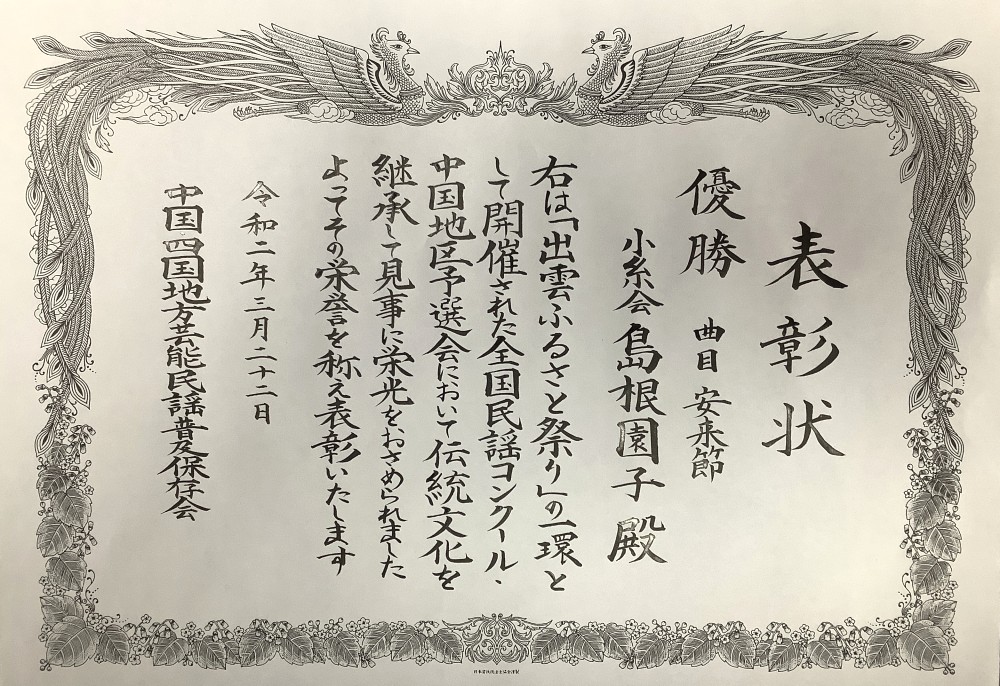 表彰状
優勝 曲目 安来節
小糸会 島根園子 殿
右は「出雲ふるさと祭り」の一環と
して開催された全国民謡コンクール・
中国地区予選会において伝統文化を
継承して見事に栄光をおさめられました
よってその栄誉を称え表彰いたします
令和二年三月二十二日
中国四国地方芸能民謡普及保存会